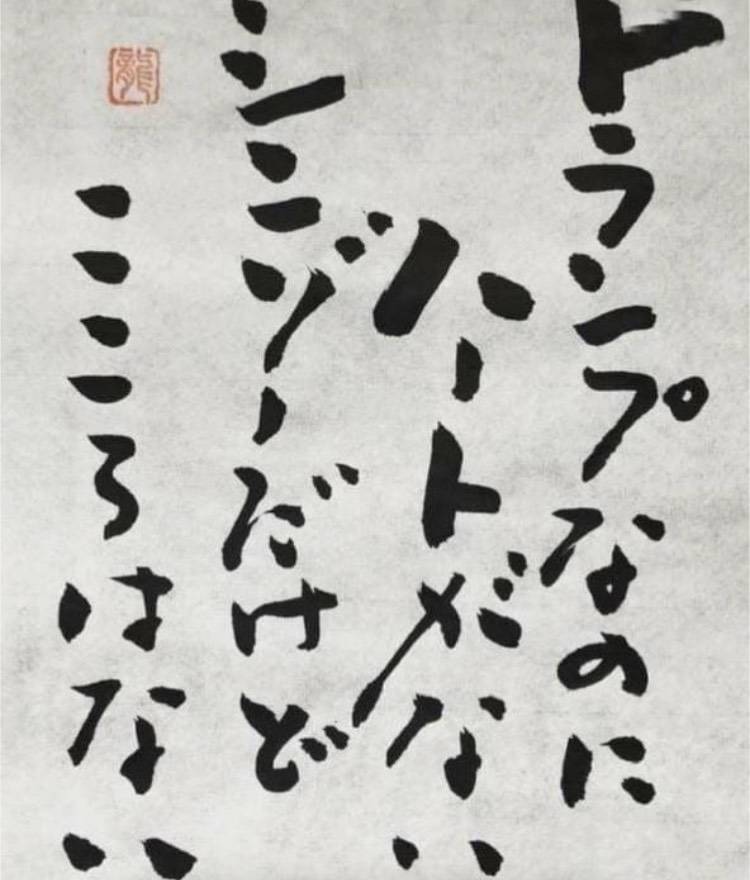 トランプなのに
ハートがない
シンゾーだけど
こころはない
龍